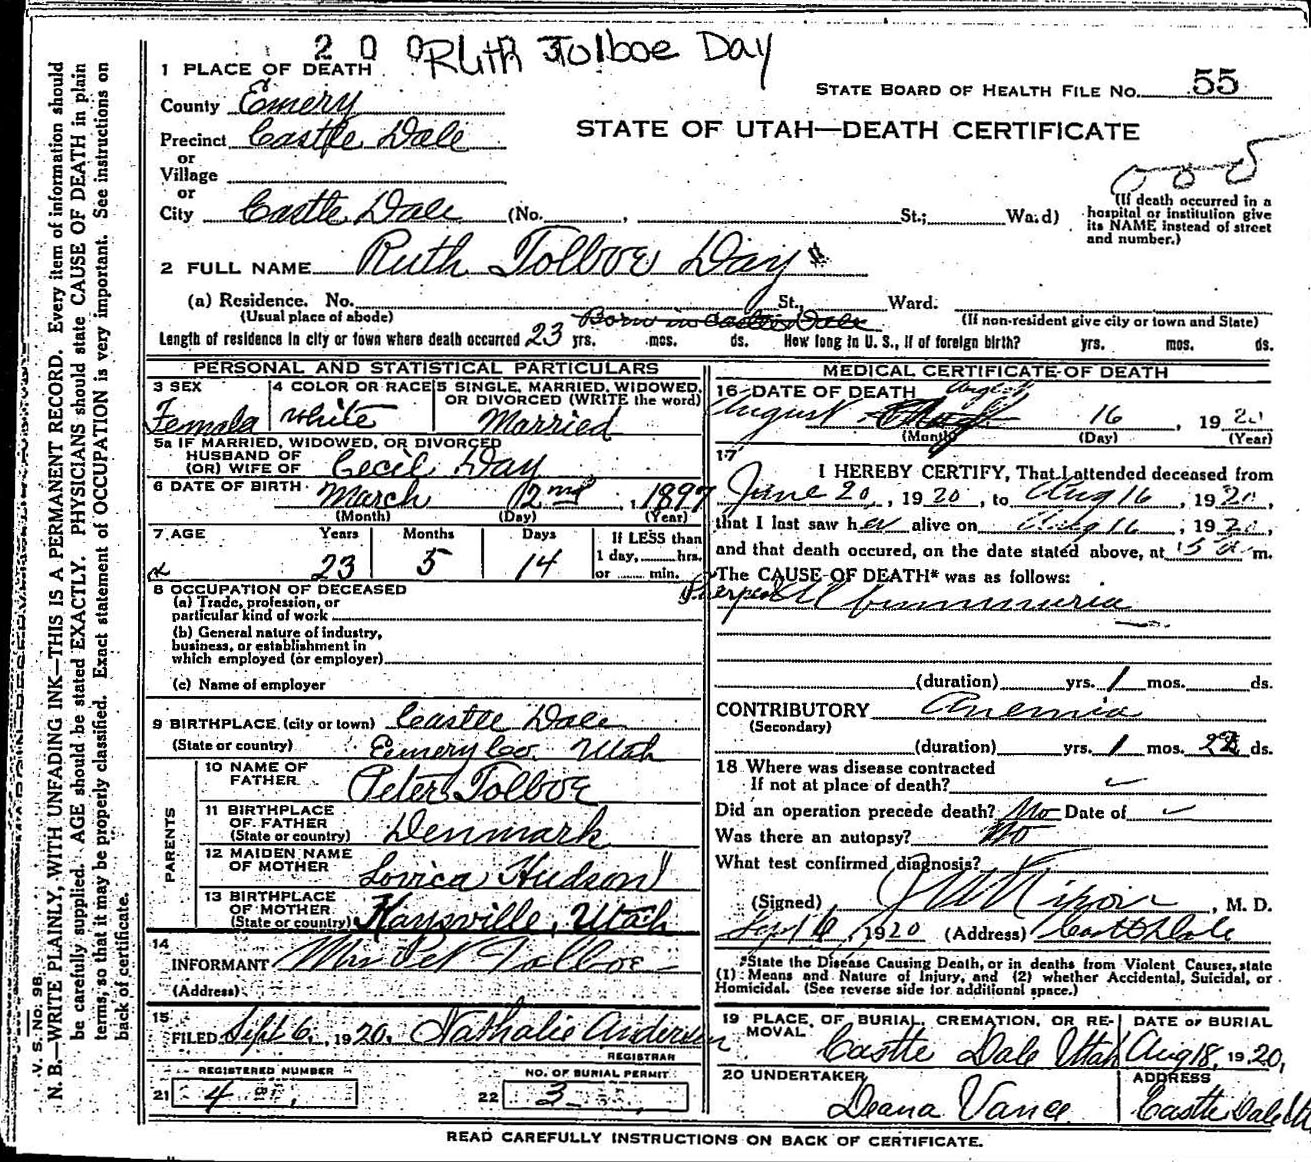 2 0 0 Ruth Tolboe Day
1 PLACE OF DEATH
STATE BOARD OF HEALTH FILE NO. 55
County Emery
STATE OF UTAH—DEATH CERTIFICATE
Precinct Castle Dale
or
Village
or
City Castle Dale (No. , St.; Ward)
(If death occurred in a hospital or institution give its NAME instead of street and number.)
2 FULL NAME Ruth Tolboe Day
(a) Residence. No. St., Ward.
(Usual place of abode) Born in Castle Dale (If non-resident give city or town and State)
Length of residence in city or town where death occurred 23 yrs. mos. ds. How long in U. S., if of foreign birth? yrs. mos. ds.
PERSONAL AND STATISTICAL PARTICULARS
3 SEX 4 COLOR OR RACE 5 SINGLE, MARRIED, WIDOWED, OR DIVORCED (WRITE the word)
Female White Married
5a IF MARRIED, WIDOWED, OR DIVORCED
HUSBAND OF
(OR) WIFE OF Cecil Day
6 DATE OF BIRTH March 2nd, 1897
(Month) (Day) (Year)
7 AGE Years Months Days If LESS than
1 day, hrs.
or min.
23 5 14
8 OCCUPATION OF DECEASED
(a) Trade, profession, or
particular kind of work
(b) General nature of industry,
business, or establishment in
which employed (or employer)
(c) Name of employer
9 BIRTHPLACE (city or town) Castle Dale
(State or country) Emery Co. Utah
PARENTS
10 NAME OF FATHER Peter Tolboe
11 BIRTHPLACE OF FATHER (State or country) Denmark
12 MAIDEN NAME OF MOTHER Lovica Hudson
13 BIRTHPLACE OF MOTHER (State or country) Kaysville, Utah
14 INFORMANT Mrs Pet Tolboe
(Address)
15 FILED Sept 6, 1920. Nathalie Andersen
REGISTRAR
REGISTERED NUMBER
21 4
NO. OF BURIAL PERMIT
22 3
MEDICAL CERTIFICATE OF DEATH
16 DATE OF DEATH
August 16, 1920
(Month) (Day) (Year)
17 I HEREBY CERTIFY, That I attended deceased from
June 20, 1920, to Aug 16, 1920,
that I last saw her alive on Aug 16, 1920,
and that death occured, on the date stated above, at 5 a m.
The CAUSE OF DEATH* was as follows:
(duration) yrs. 1 mos. ds.
CONTRIBUTORY Anemia
(Secondary)
(duration) yrs. 1 mos. 22 ds.
18 Where was disease contracted
If not at place of death?
Did an operation precede death? No Date of
Was there an autopsy? No
What test confirmed diagnosis?
(Signed) , M. D.
Sept, 1920 (Address) Castle Dale
*State the Disease Causing Death, or in deaths from Violent Causes, state
(1) Means and Nature of Injury, and (2) whether Accidental, Suicidal, or
Homicidal. (See reverse side for additional space.)
19 PLACE OF BURIAL, CREMATION, OR REMOVAL DATE OF BURIAL
Castle Dale Utah Aug 18, 1920,
20 UNDERTAKER ADDRESS
Deana Vance. Castle Dale
READ CAREFULLY INSTRUCTIONS ON BACK OF CERTIFICATE.
V. S. No. 98
N. B.—WRITE PLAINLY, WITH UNFADING INK—THIS IS A PERMANENT RECORD. Every item of information should
be carefully supplied. AGE should be stated EXACTLY. PHYSICIANS should state CAUSE OF DEATH in plain
terms, so that it may be properly classified. Exact statement of OCCUPATION is very important. See instructions on
back of certificate.